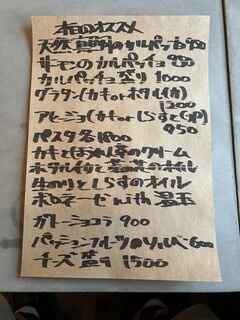 本日のオススメ
天然真鯛のカルパッチョ 950
サーモンのカルパッチョ 950
カルパッチョ盛り 1000
グラタン(カキorホタルイカ)
1200
アヒージョ(カキorしらすと
950
パスタ各1800
カキとほうれん草のクリーム
ホタルイカと菜の花のオイル
生のりとしらすのオイル
ボロネーゼ with 温玉
ガトーショコラ 900
パッションフルーツのソルベ 600
チーズ盛り 1500